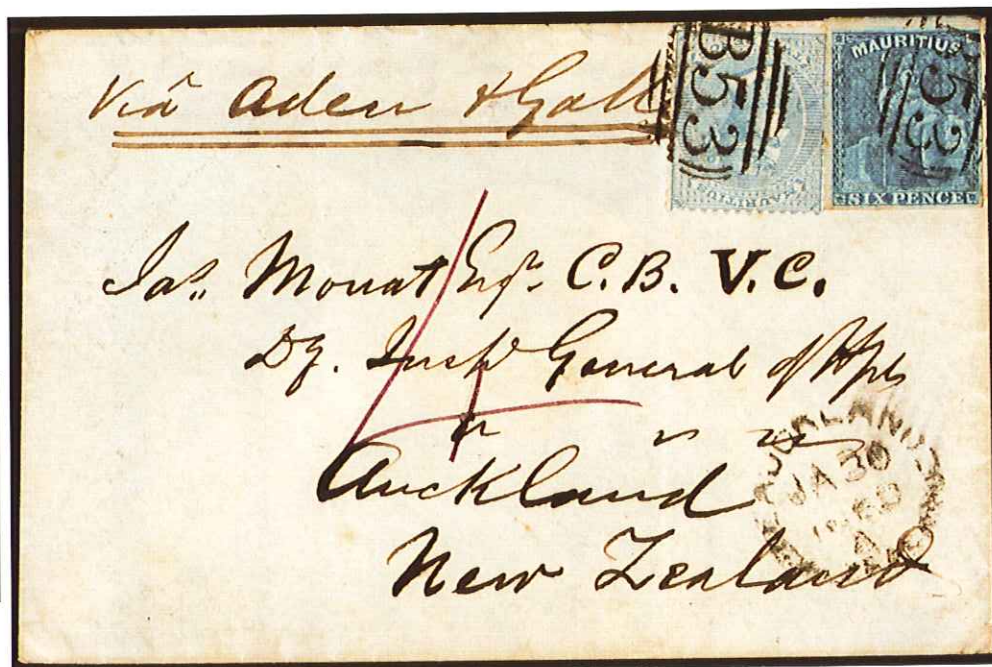 Viâ Aden & Galle
B53
MAURITIUS
B53
MAURITIUS
SIX PENCE
Jas. Mouat Esqr. C.B. V.C.
Dy. Inspr General of Hpls
4
Auckland
New Zealand
AUCKLAND
JA 30